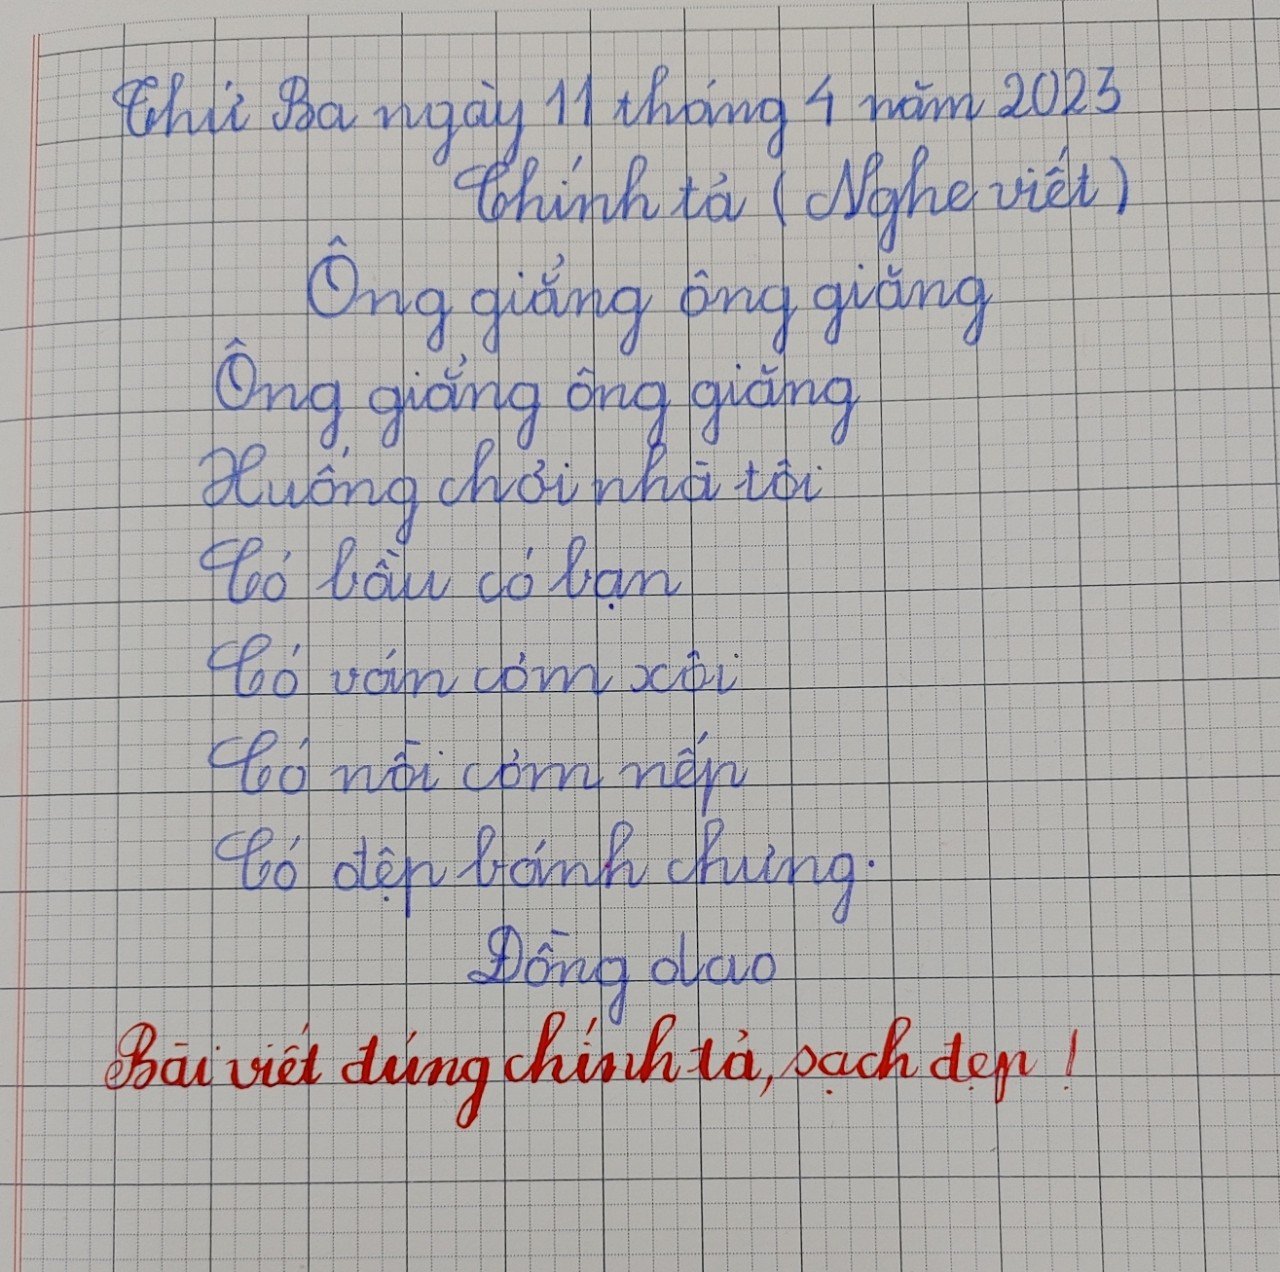 Thứ Ba ngày 11 tháng 4 năm 2023
Chính tả (Nghe viết)
Ông giẳng ông giăng
Ông giẳng ông giăng
Xuống chơi nhà tôi
Có bầu có bạn
Có ván cơm xôi
Có nồi cơm nếp
Có đệp bánh chưng.
Đồng dao
Bài viết đúng chính tả, sạch đẹp!